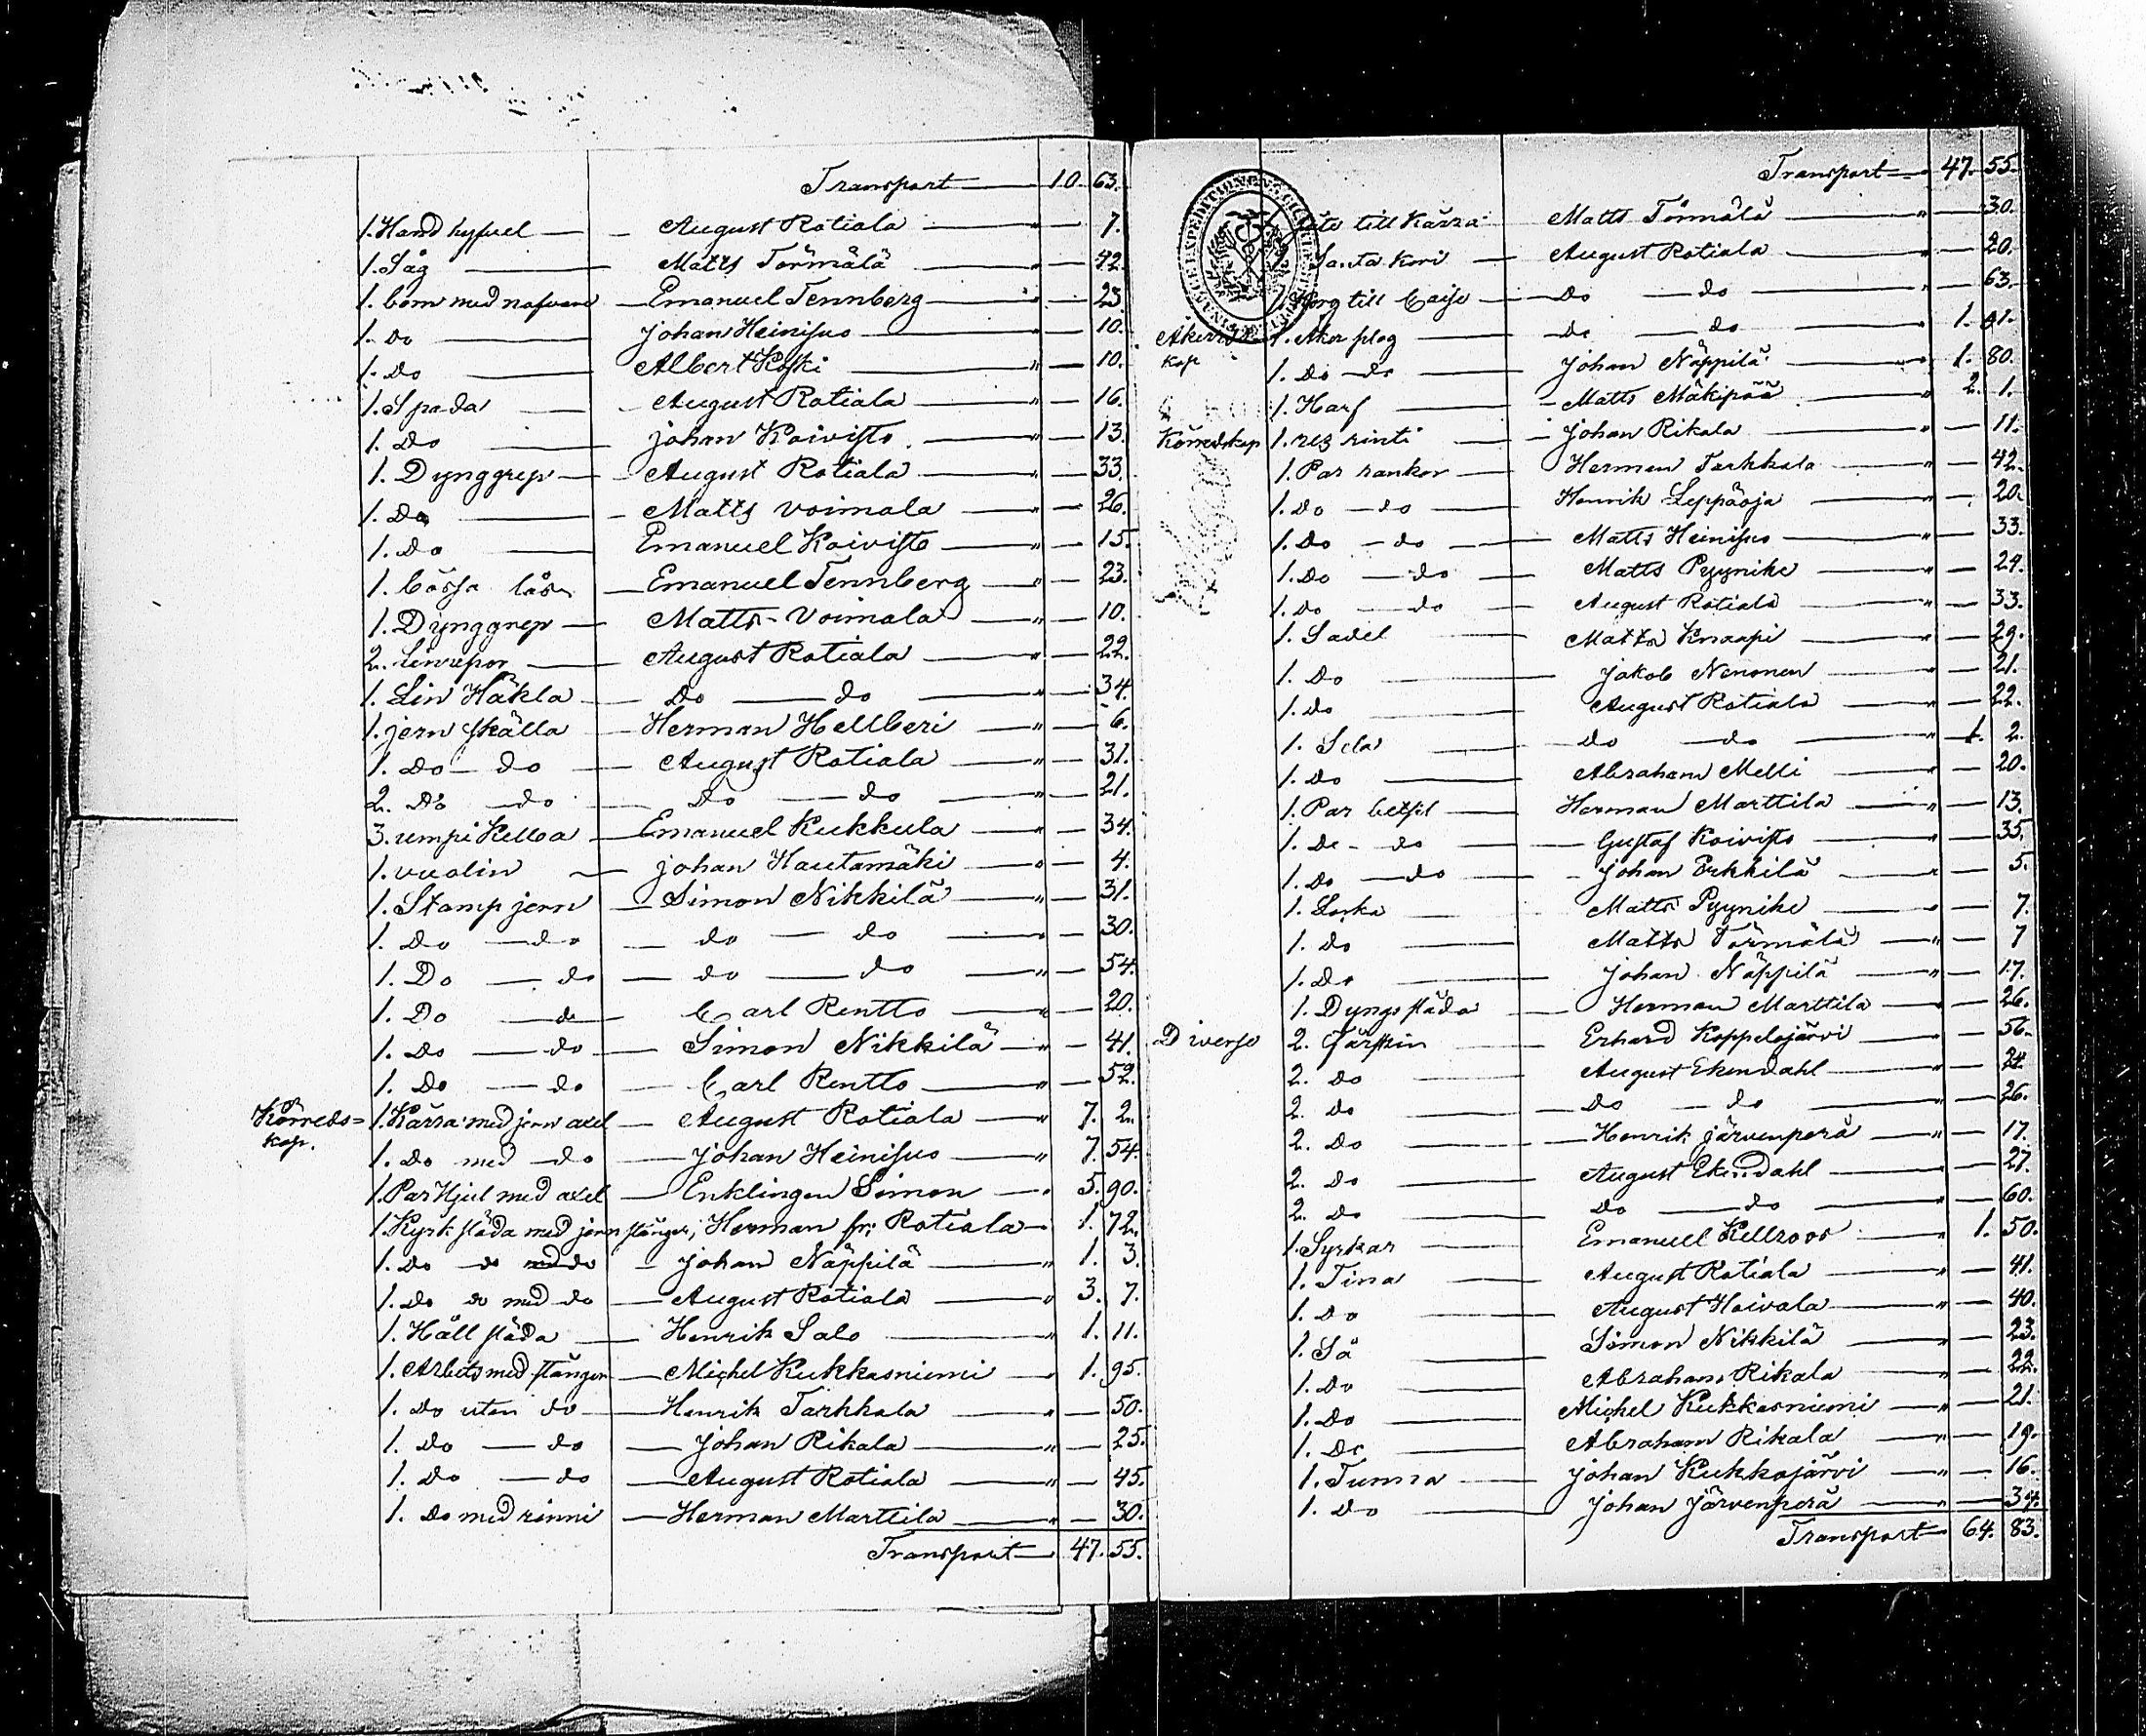 Transport 10. 63.
1. Hand hyfvel August Rotiala " 7.
1. Såg Matts Törmälä " 42.
1. bom med nafvare Emanuel Tennberg " 23.
1. do Johan Heinisuo " 10.
1. do Albert Koski " 10.
1. Spada August Rotiala " 16.
1. do Johan Koivisto " 13.
1. Dynggrep August Rotiala " 33.
1. do Matts Voimala " 26.
1. do Emanuel Koivisto " 15.
1. bössa lås Emanuel Tennberg " 23.
1. Dynggrep Matts Voimala " 10.
2. August Rotiala " 22.
1. Lin Häkla do do " 34.
1. jern skälla Herman Hellberi " 6.
1. do do August Rotiala " 31.
2. do do do do " 21.
3. umpi Kelloa Emanuel Kukkula " 34.
1. vuolin Johan Hautamäki " 4.
1. Stamp jern Simon Nikkilä " 31.
1. do do do do " 30.
1. Do do do do " 54.
1. Do do Carl Rentto " 20.
1. do do Simon Nikkilä " 41.
1. do do Carl Rentto " 52.
Köreds= 1. Kärra med jern axel August Rotiala " 7. 2.
kap. 1. do med do Johan Heinisuo " 7. 54.
1. Par Hjul med axel Enklingen Simon " 5. 90.
1. Kyrk släda med jern stänger, Herman fr: Rotiala 1. 72.
1. do do med do Johan Näppilä " 1. 3.
1. do do med do August Rotiala " 3. 7.
1. Håll släda Henrik Salo " 1. 11.
1. Arbets med stänger Michel Kukkasniemi 1. 95.
1. Do utan do Henrik Tarkkala " 50.
1. do do Johan Rikala " 25.
1. do do August Rotiala " 45.
1. do med rinni Herman Marttila " 30.
Transport 47. 55.
Transport 47. 55.
till Kärra Matts Törmälä " 30.
Santa Kori August Rotiala " 20.
1 Korg till do do " 63.
1. Åker plog do do " 1. 41.
kap 1. do do Johan Näppilä " 1. 80.
1. Harf Matts Mäkipää " 2. 1.
Köredskap 1. rez rinti Johan Rikala " 11.
1. Par rankor Herman Tarkkala " 42.
1. do do Henrik Leppäoja " 20.
1. Do do Matts Heinisuo " 33.
1. Do do Matts Pyynike " 29.
1. do do August Rotiala " 33.
1. Sadel Matts Knaapi " 29.
1. do Jakob Nenonen " 21.
1. do August Rotiala " 22.
1. Sela do do " 1. 2.
1. do Abraham Melli " 20.
1. Par betsel Herman Marttila " 13.
1. do do Gustaf Koivisto " 35.
1. do do Johan Erkkilä " 5.
1. Matts Pyynike " 7.
1. do Matts Törmälä " 7
1. do Johan Näppilä " 17.
1. Dyngsläda Herman Marttila " 26.
Diverse 2. Fårskin Erhard Koppelojärvi " 56.
2. do August Ekendahl " 24.
2. do do do " 26.
2. Do Henrik Järvenperä " 17.
2. do August Ekendahl " 27.
2. do do do " 60.
1. Syrkar Emanuel Kellroos " 1. 50.
1. Tina August Rotiala " 41.
1. do August Hoivala " 40.
1. Så Simon Nikkilä " 23.
1. do Abraham Rikala " 22.
1. do Michel Kukkasniemi " 21.
1. do Abraham Rikala " 19.
1. Tunna Johan Kukkojärvi " 16.
1. Do Johan Järvenperä " 34.
Transport 64. 83.